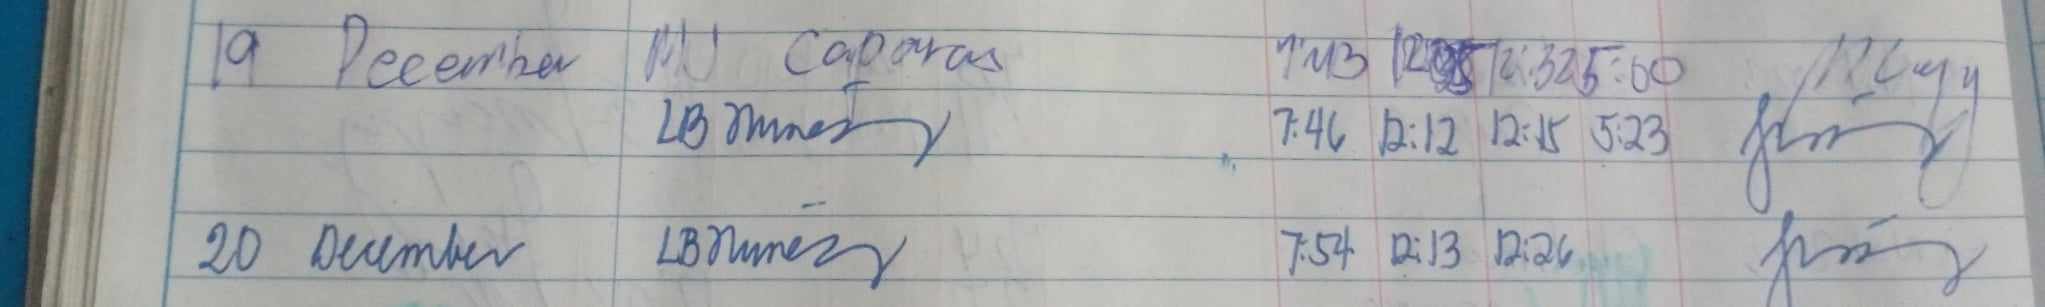 19 December MJ Caparas 7:43 12:32 5:00
LB Nunez 7:46 12:12 12:15 5:23
20 December LB Nunez 7:54 12:13 12:26